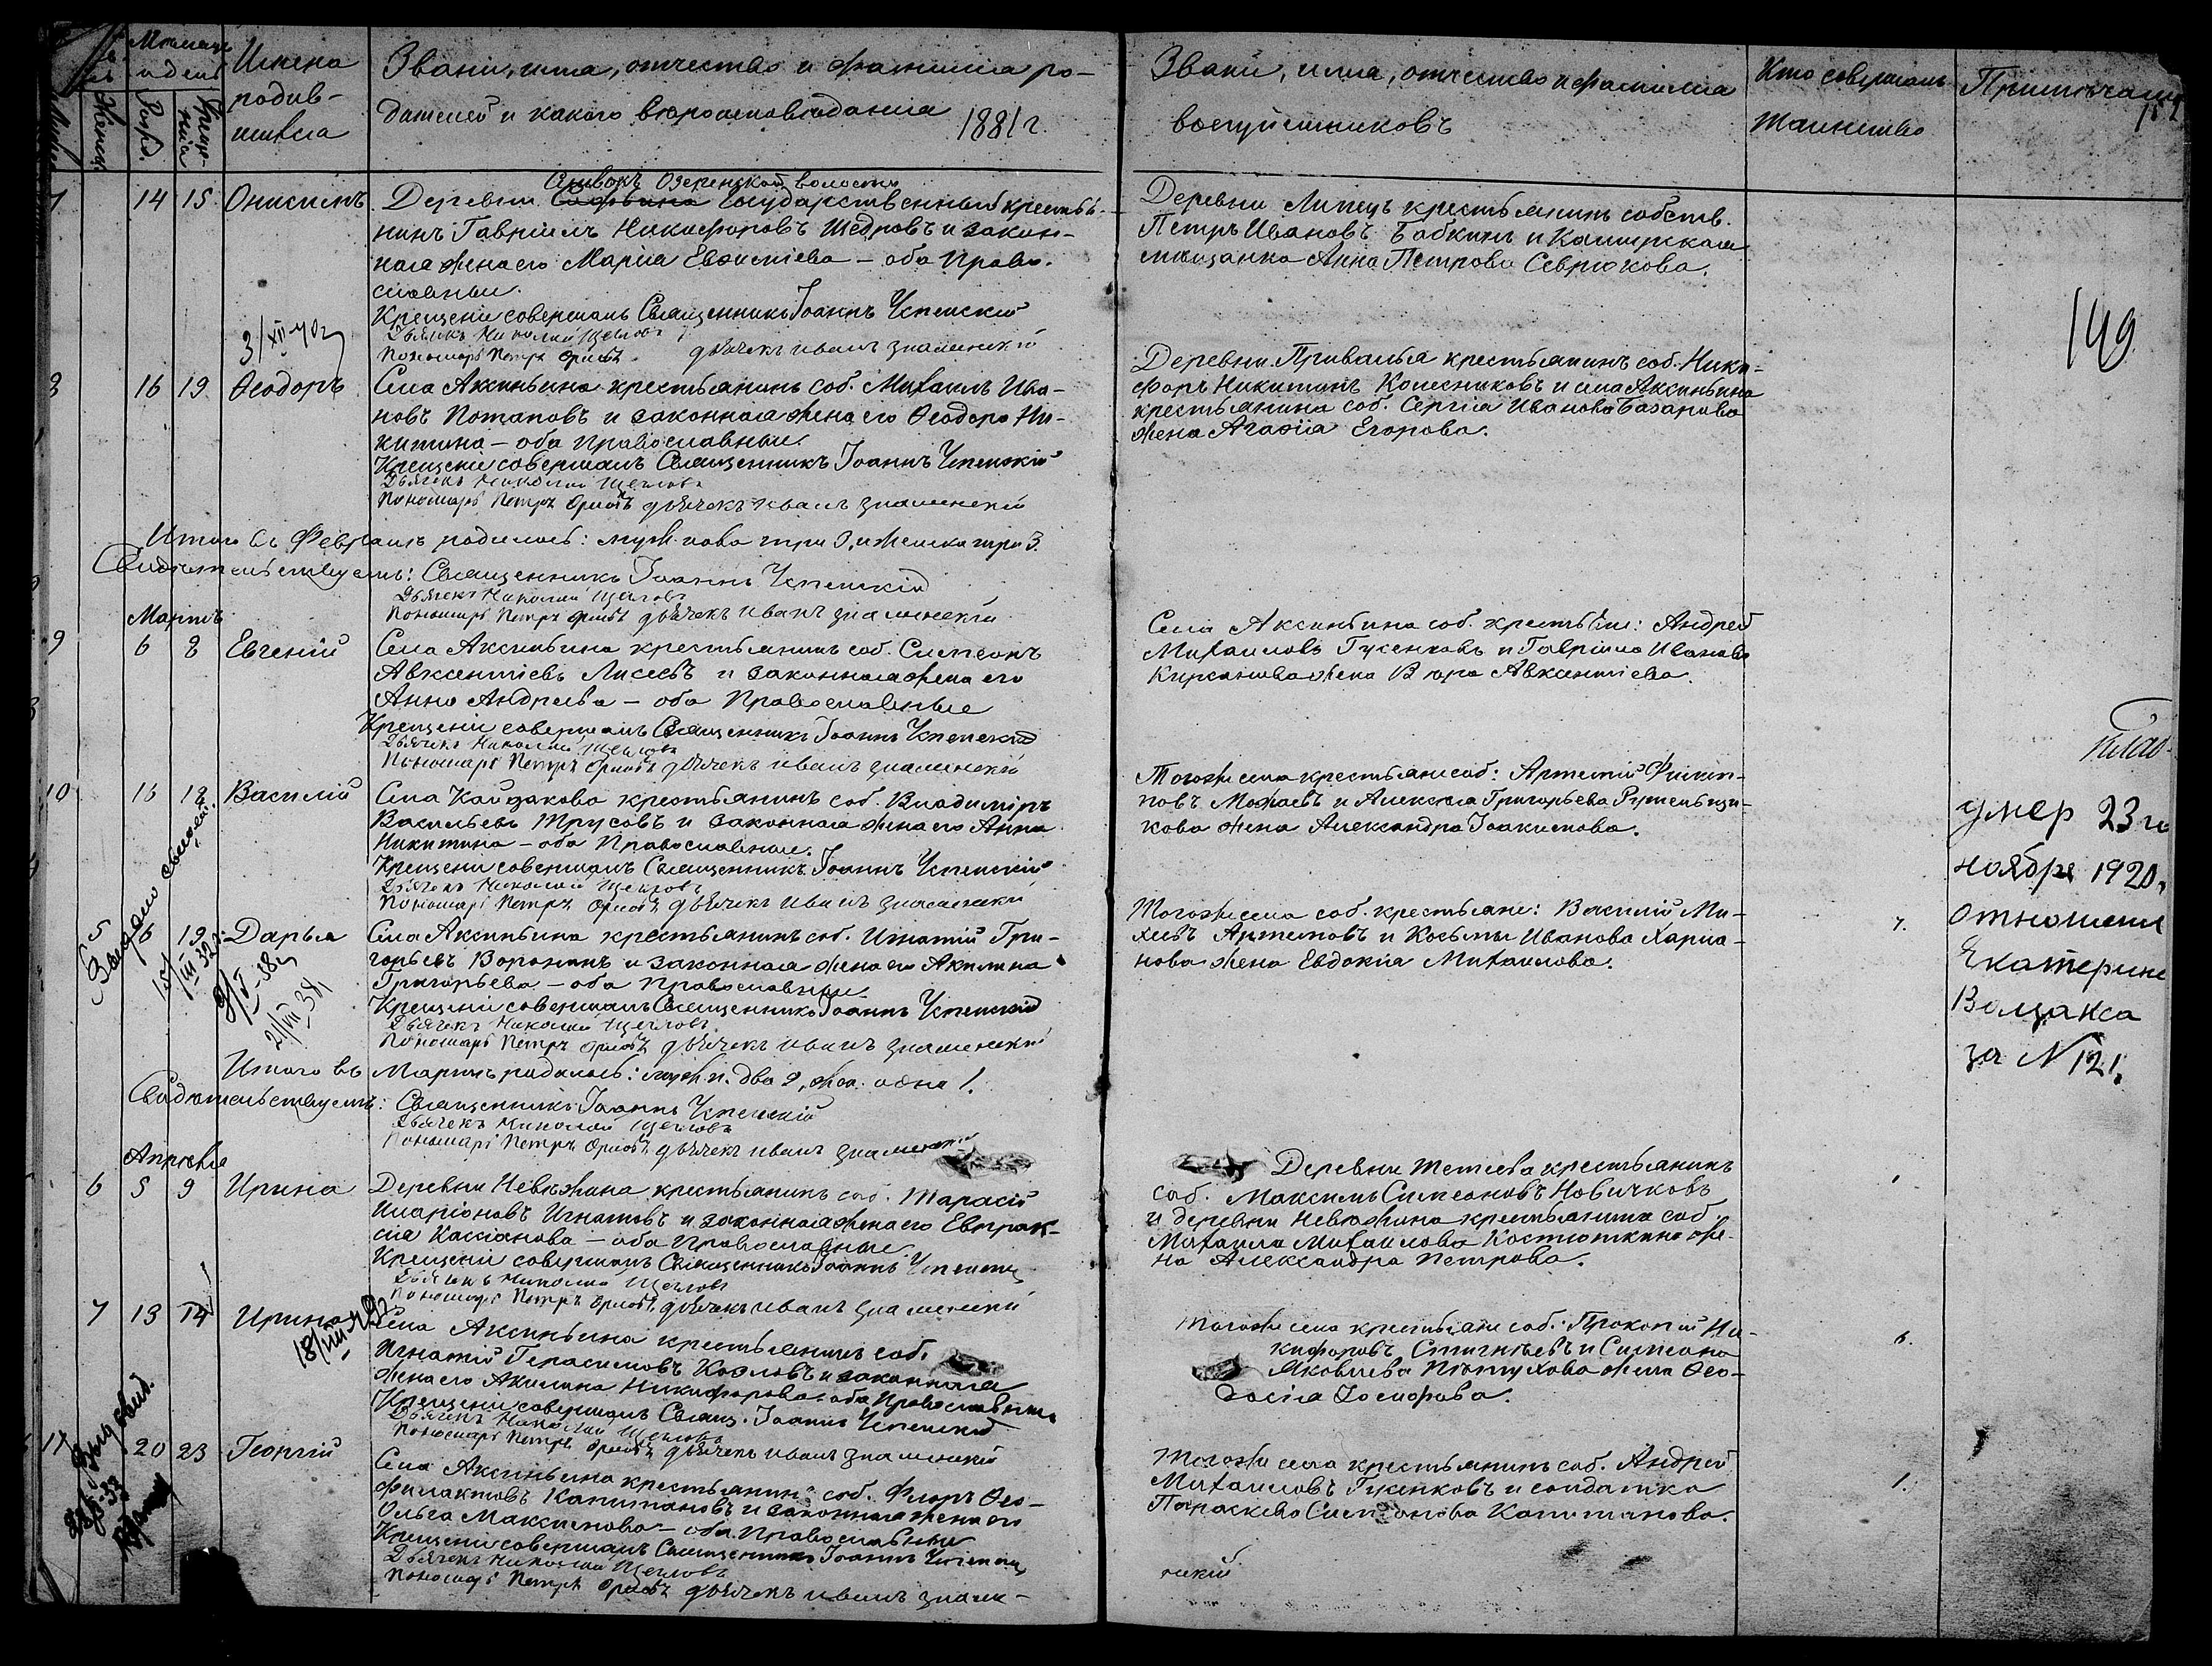 Мѣсяцъ
и день
Имена
родив-
шихся
Женск.
Рожд.
Креще-
нія
Званіе, имя, отчество и фамилія ро-
дителей и какого вѣроисповѣданія 1881 г.
Званіе, имя, отчество и фамилія
воспріемниковъ
Кто совершалъ
таинство
Примѣчаніе
149
7 14 15 Онисимъ
Озеренской волости
Деревни государственный крестья-
нинъ Гавріилъ Никифоровъ Щедровъ и закон-
ная жена его Марія Евсигніева – оба Право-
славные.
Крещеніе совершалъ Священникъ Іоаннъ Успенскій
Дьячекъ Николай Щегловъ
Пономарь Петръ Орловъ дьячекъ Иванъ Знаменскій
Деревни Липецъ крестьянинъ собств.
Петръ Ивановъ Бабкинъ и Каширская
мѣщанка Анна Петрова Севрюкова.
3/XII-40г
8 16 19 Ѳеодоръ
Села Аксиньина крестьянинъ соб. Михаилъ Ива-
новъ Потаповъ и законная жена его Ѳеодора Ни-
китина – оба Православные
Крещеніе совершалъ Священникъ Іоаннъ Успенскій
Дьячекъ Николай Щегловъ
Пономарь Петръ Орловъ дьячекъ Иванъ Знаменскій
Деревни Привалья крестьянинъ соб. Ники-
форъ Никитинъ Колесниковъ и села Аксиньина
крестьянина соб. Сергія Иванова Базарова
жена Агафія Егорова.
Итого въ Февралѣ родилось: муж. пола три 3, и женска три 3.
Свидѣтельствуемъ: Священникъ Іоаннъ Успенскій
Дьячекъ Николай Щегловъ
Пономарь Петръ Орловъ дьячекъ Иванъ Знаменскій
Мартъ
9 6 8 Евгеній
Села Аксиньина крестьянинъ соб. Симеонъ
Авксентіевъ Лисѣевъ и законная жена его
Анна Андреева – оба Православные
Крещеніе совершалъ Священникъ Іоаннъ Успенскій
Дьячекъ Николай Щегловъ
Пономарь Петръ Орловъ дьячекъ Иванъ Знаменскій
Села Аксиньина соб. крестьяне: Андрей
Михаиловъ Гусенковъ и Гавріила Иванова
Кирсанова жена Вѣра Авксентіева.
10 13 18 Василій
Села Кайдакова крестьянинъ соб. Владиміръ
Васильевъ Трусовъ и законная жена его Анна
Никитина – оба Православные.
Крещеніе совершалъ Священникъ Іоаннъ Успенскій
Дьячекъ Николай Щегловъ
Пономарь Петръ Орловъ дьячекъ Иванъ Знаменскій
Тогоже села крестьяне соб: Артемій Филип-
повъ Можаевъ и Алексѣя Григорьева
кова жена Александра Іоакимова.
умер 23 го
ноября 1920.
отношения
Екатерине
Волзакса
за N 121.
5 16 19 Дарья
Села Аксиньина крестьянинъ соб. Игнатій Гри-
горьевъ Воронинъ и законная жена его Акилина
Григорьева – оба Православные
Крещеніе совершалъ Священникъ Іоаннъ Успенскій
Дьячекъ Николай Щегловъ
Пономарь Петръ Орловъ дьячекъ Иванъ Знаменскій
Тогоже села соб. крестьяне: Василій Ми-
хеевъ Артемовъ и Косьмы Иванова Харла-
нова жена Евдокія Михаилова.
21/III 38г
Итого въ Мартѣ родилось: муж. п. два 2, жен. одна 1.
Свидѣтельствуемъ: Священникъ Іоаннъ Успенскій
Дьячекъ Николай Щегловъ
Пономарь Петръ Орловъ дьячекъ Иванъ Знаменскій
Апрѣль
6 5 9 Ирина
Деревни Невѣжина крестьянинъ соб. Тарасій
Иларіоновъ Игнатовъ и законная жена его Евпрак-
сія Кассіанова – оба Православные
Крещеніе совершалъ Священникъ Іоаннъ Успенскій
Дьячекъ Николай Щегловъ
Пономарь Петръ Орловъ дьячекъ Иванъ Знаменскій
Деревни Тетеева крестьянинъ
соб. Максимъ Симеоновъ Новичковъ
и деревни Невѣжина крестьянина соб.
Михаила Михаилова Костюшкина же-
на Александра Петрова.
7 13 14 Ирина
Села Аксиньина крестьянинъ соб.
Игнатій Герасимовъ Козловъ и законная
жена его Акилина Никифорова оба Православные
Крещеніе совершалъ Священ. Іоаннъ Успенскій
Дьячекъ Николай Щегловъ
Пономарь Петръ Орловъ дьячекъ Иванъ Знаменскій
Тогоже села крестьяне соб.: Прокопій Ни-
кифоровъ и Симеона
Яковлева Пѣтухова жена Ѳео-
досія Іосифова.
11 20 23 Георгій
Села Аксиньина крестьянинъ соб. Флоръ Ѳео-
филактовъ Капитановъ и законная жена его
Ольга Максимова – оба Православные
Крещеніе совершалъ Священникъ Іоаннъ Успенскій
Дьячекъ Николай Щегловъ
Пономарь Петръ Орловъ дьячекъ Иванъ Знамен-
скій
Тогоже села крестьянинъ соб. Андрей
Михаиловъ Гусенковъ и солдатка
Параскева Симеонова Капитанова.